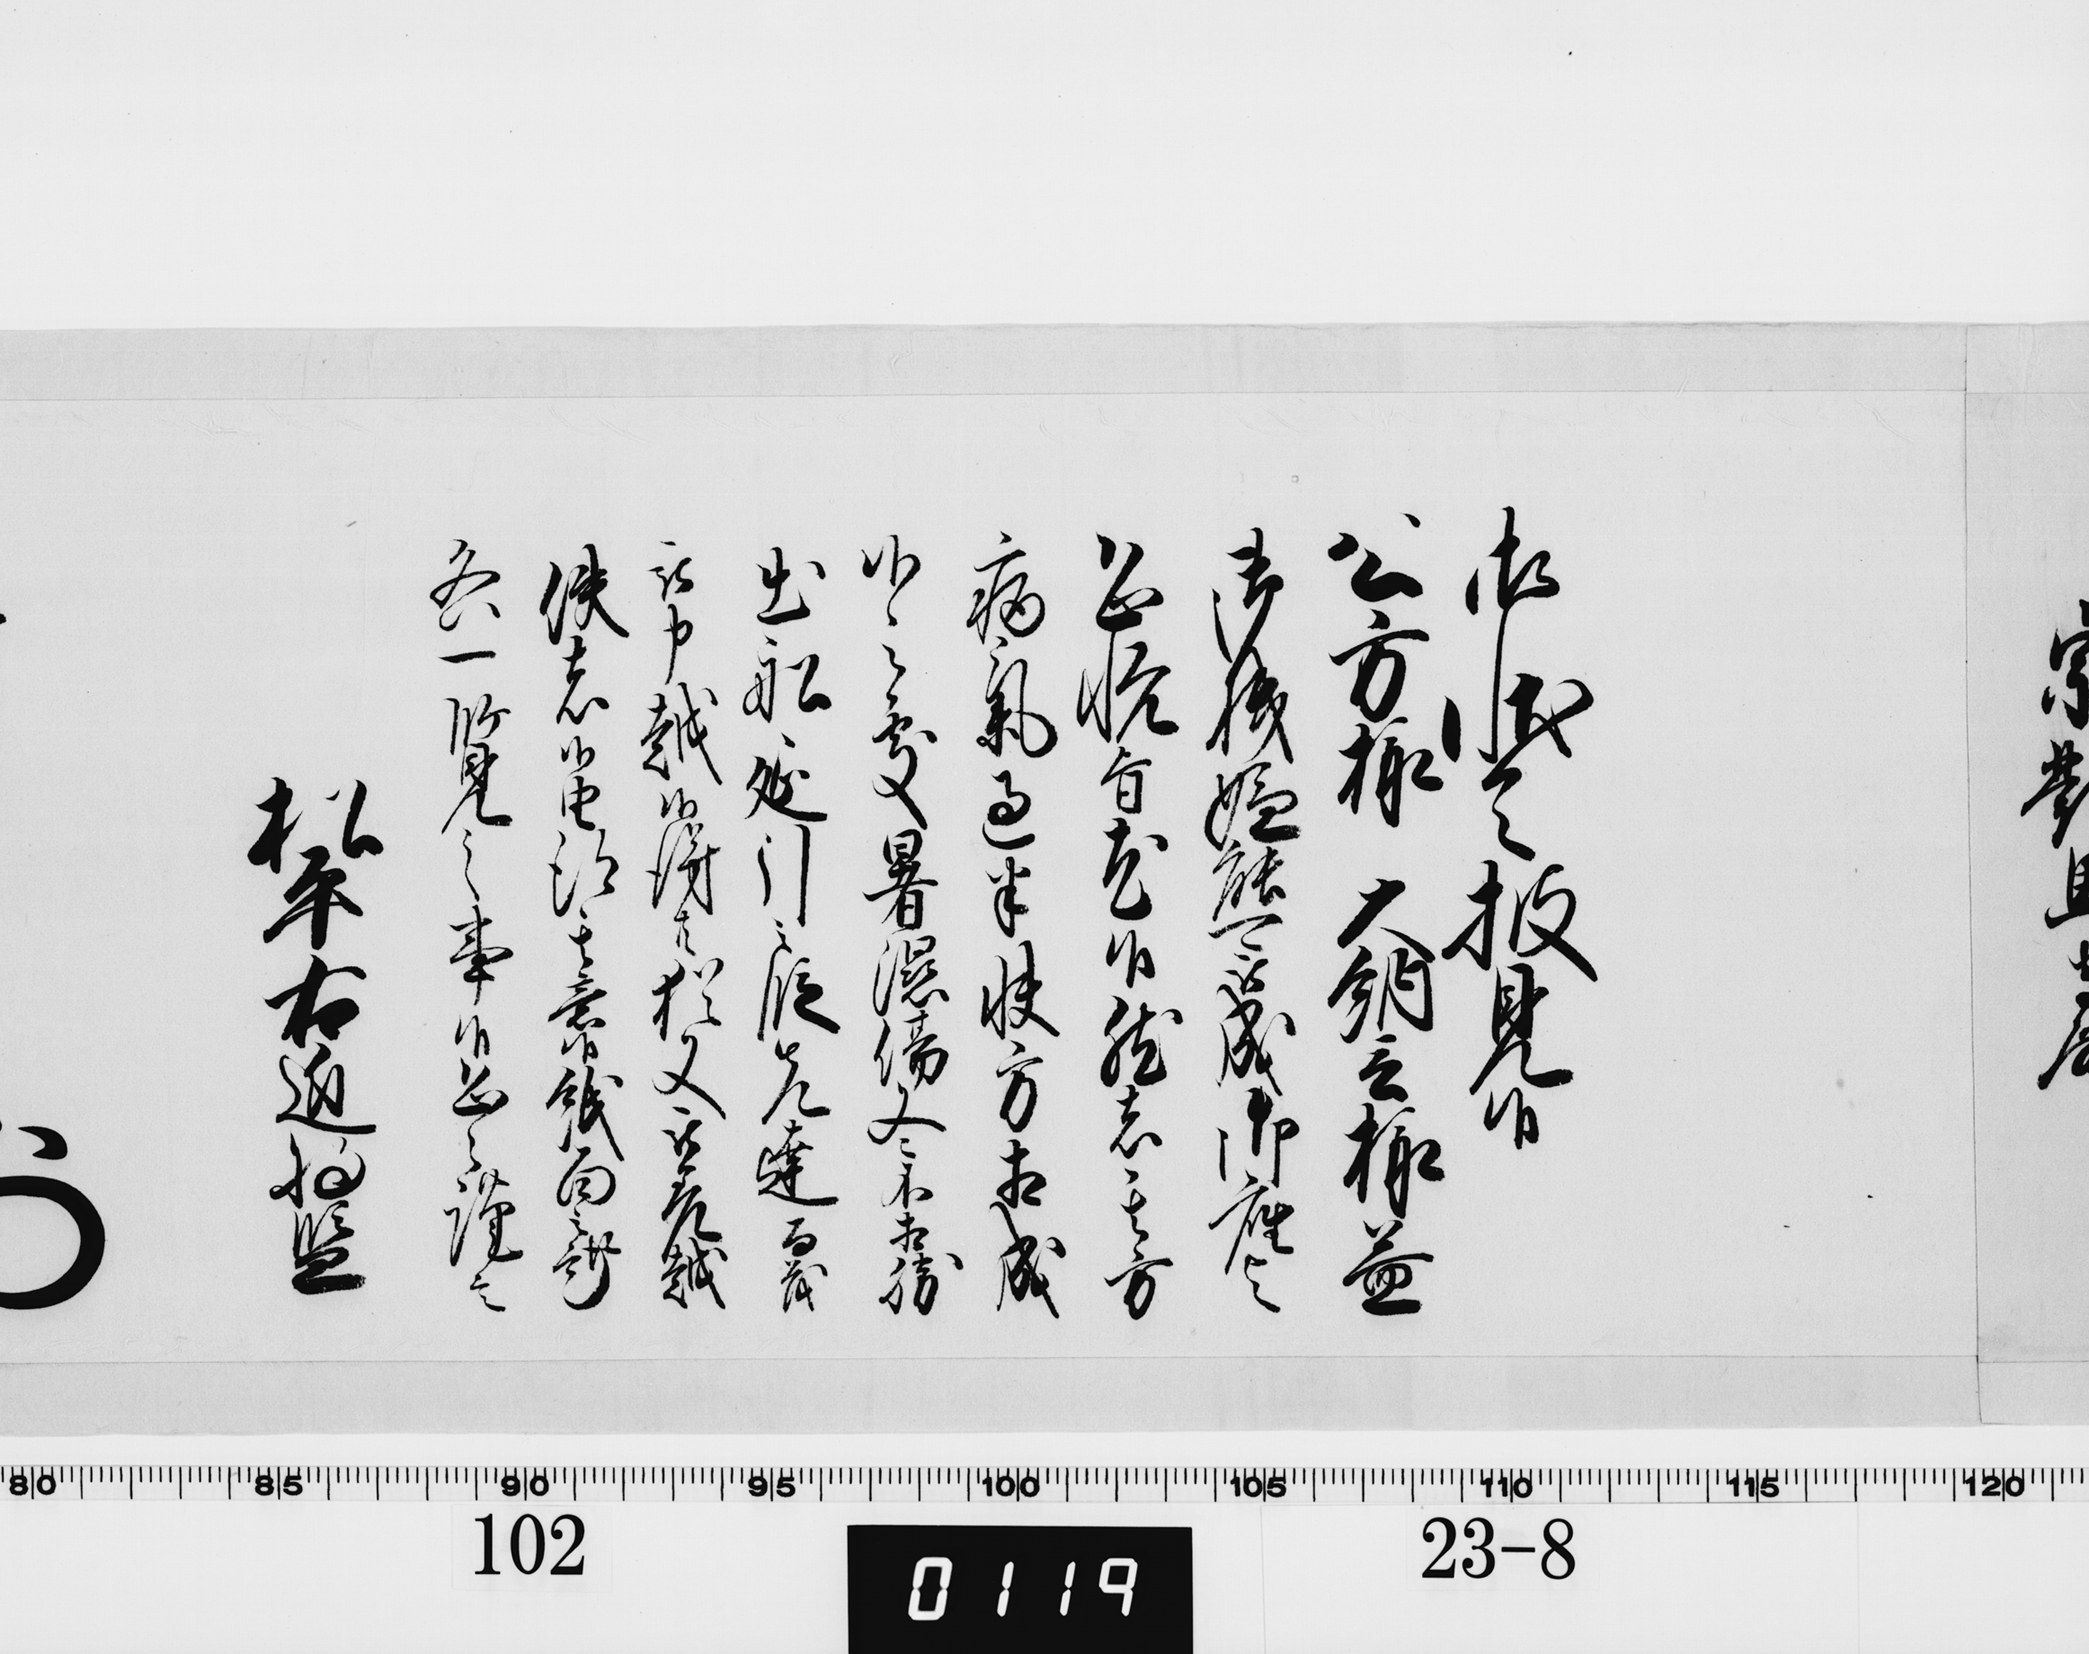 御状令披見候
公方様 大納言様益
御機嫌能被成御座之
恐悦旨尤候然者其方
病気過半快方相成
候之処暑湿傷又々不相勝
出船延引之段先達而茂
被申越候得共猶又被差越
使者候 其意候紙面之趣
各一覧之事候恐々謹言
松平右近将監
宗対馬守
80 85 90 95 100 105 110 115 120
102
0119
23-8